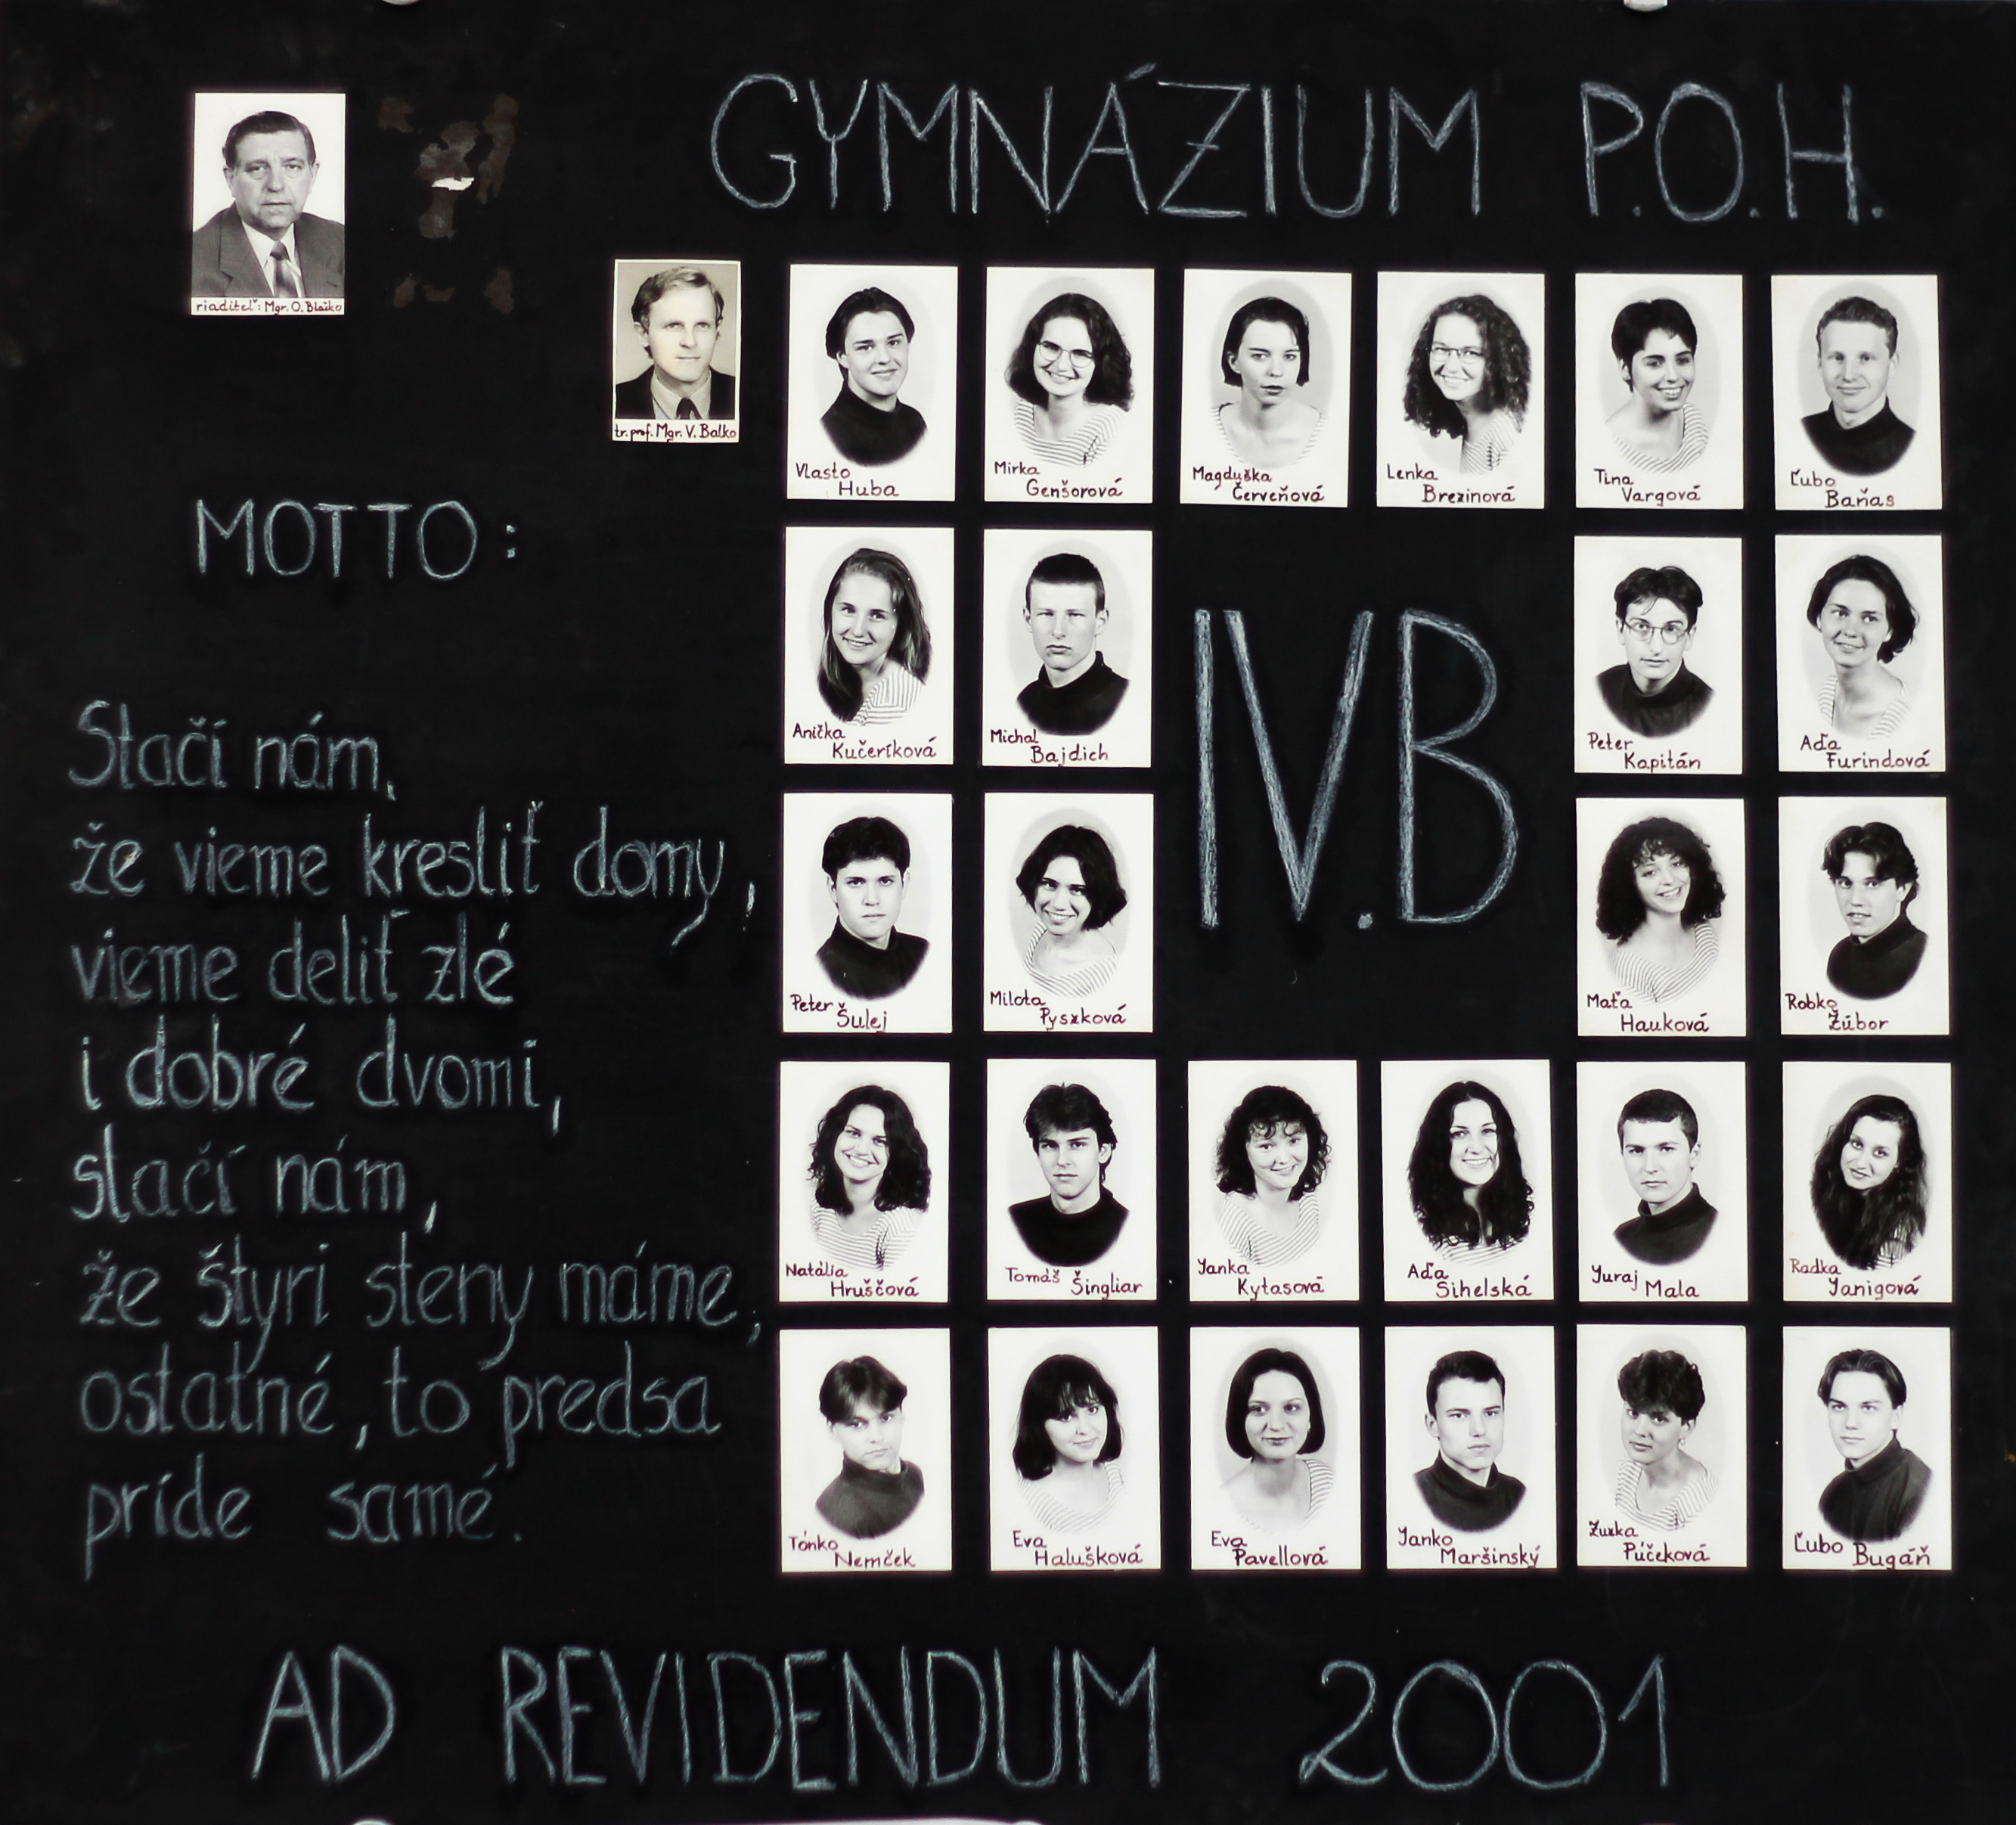 GYMNÁZIUM P.O.H.
riaditeľ: Mgr. O. Blaško
tr. prof. Mgr. V. Balko
Vlasto
Huba
Mirka
Genšorová
Magduška
Červeňová
Lenka
Brezinová
Tina
Vargová
Ľubo
Baňas
MOTTO:
Anička
Kučeríková
Michal
Bajdich
IV.B
Peter
Kapitán
Aďa
Furindová
Stačí nám,
že vieme kresliť domy,
vieme deliť zlé
i dobré dvomi,
stačí nám,
že štyri steny máme,
ostatné, to predsa
príde samé.
Peter
Šulej
Milota
Pyszková
Maťa
Hauková
Robko
Žúbor
Natália
Hruščová
Tomáš Šingliar
Janka
Kytasová
Aďa
Sihelská
Juraj
Mala
Radka
Janigová
Tónko
Nemček
Eva
Halušková
Eva
Pavellová
Janko
Maršinský
Zuzka
Púčeková
Ľubo
Bugáň
AD REVIDENDUM 2001